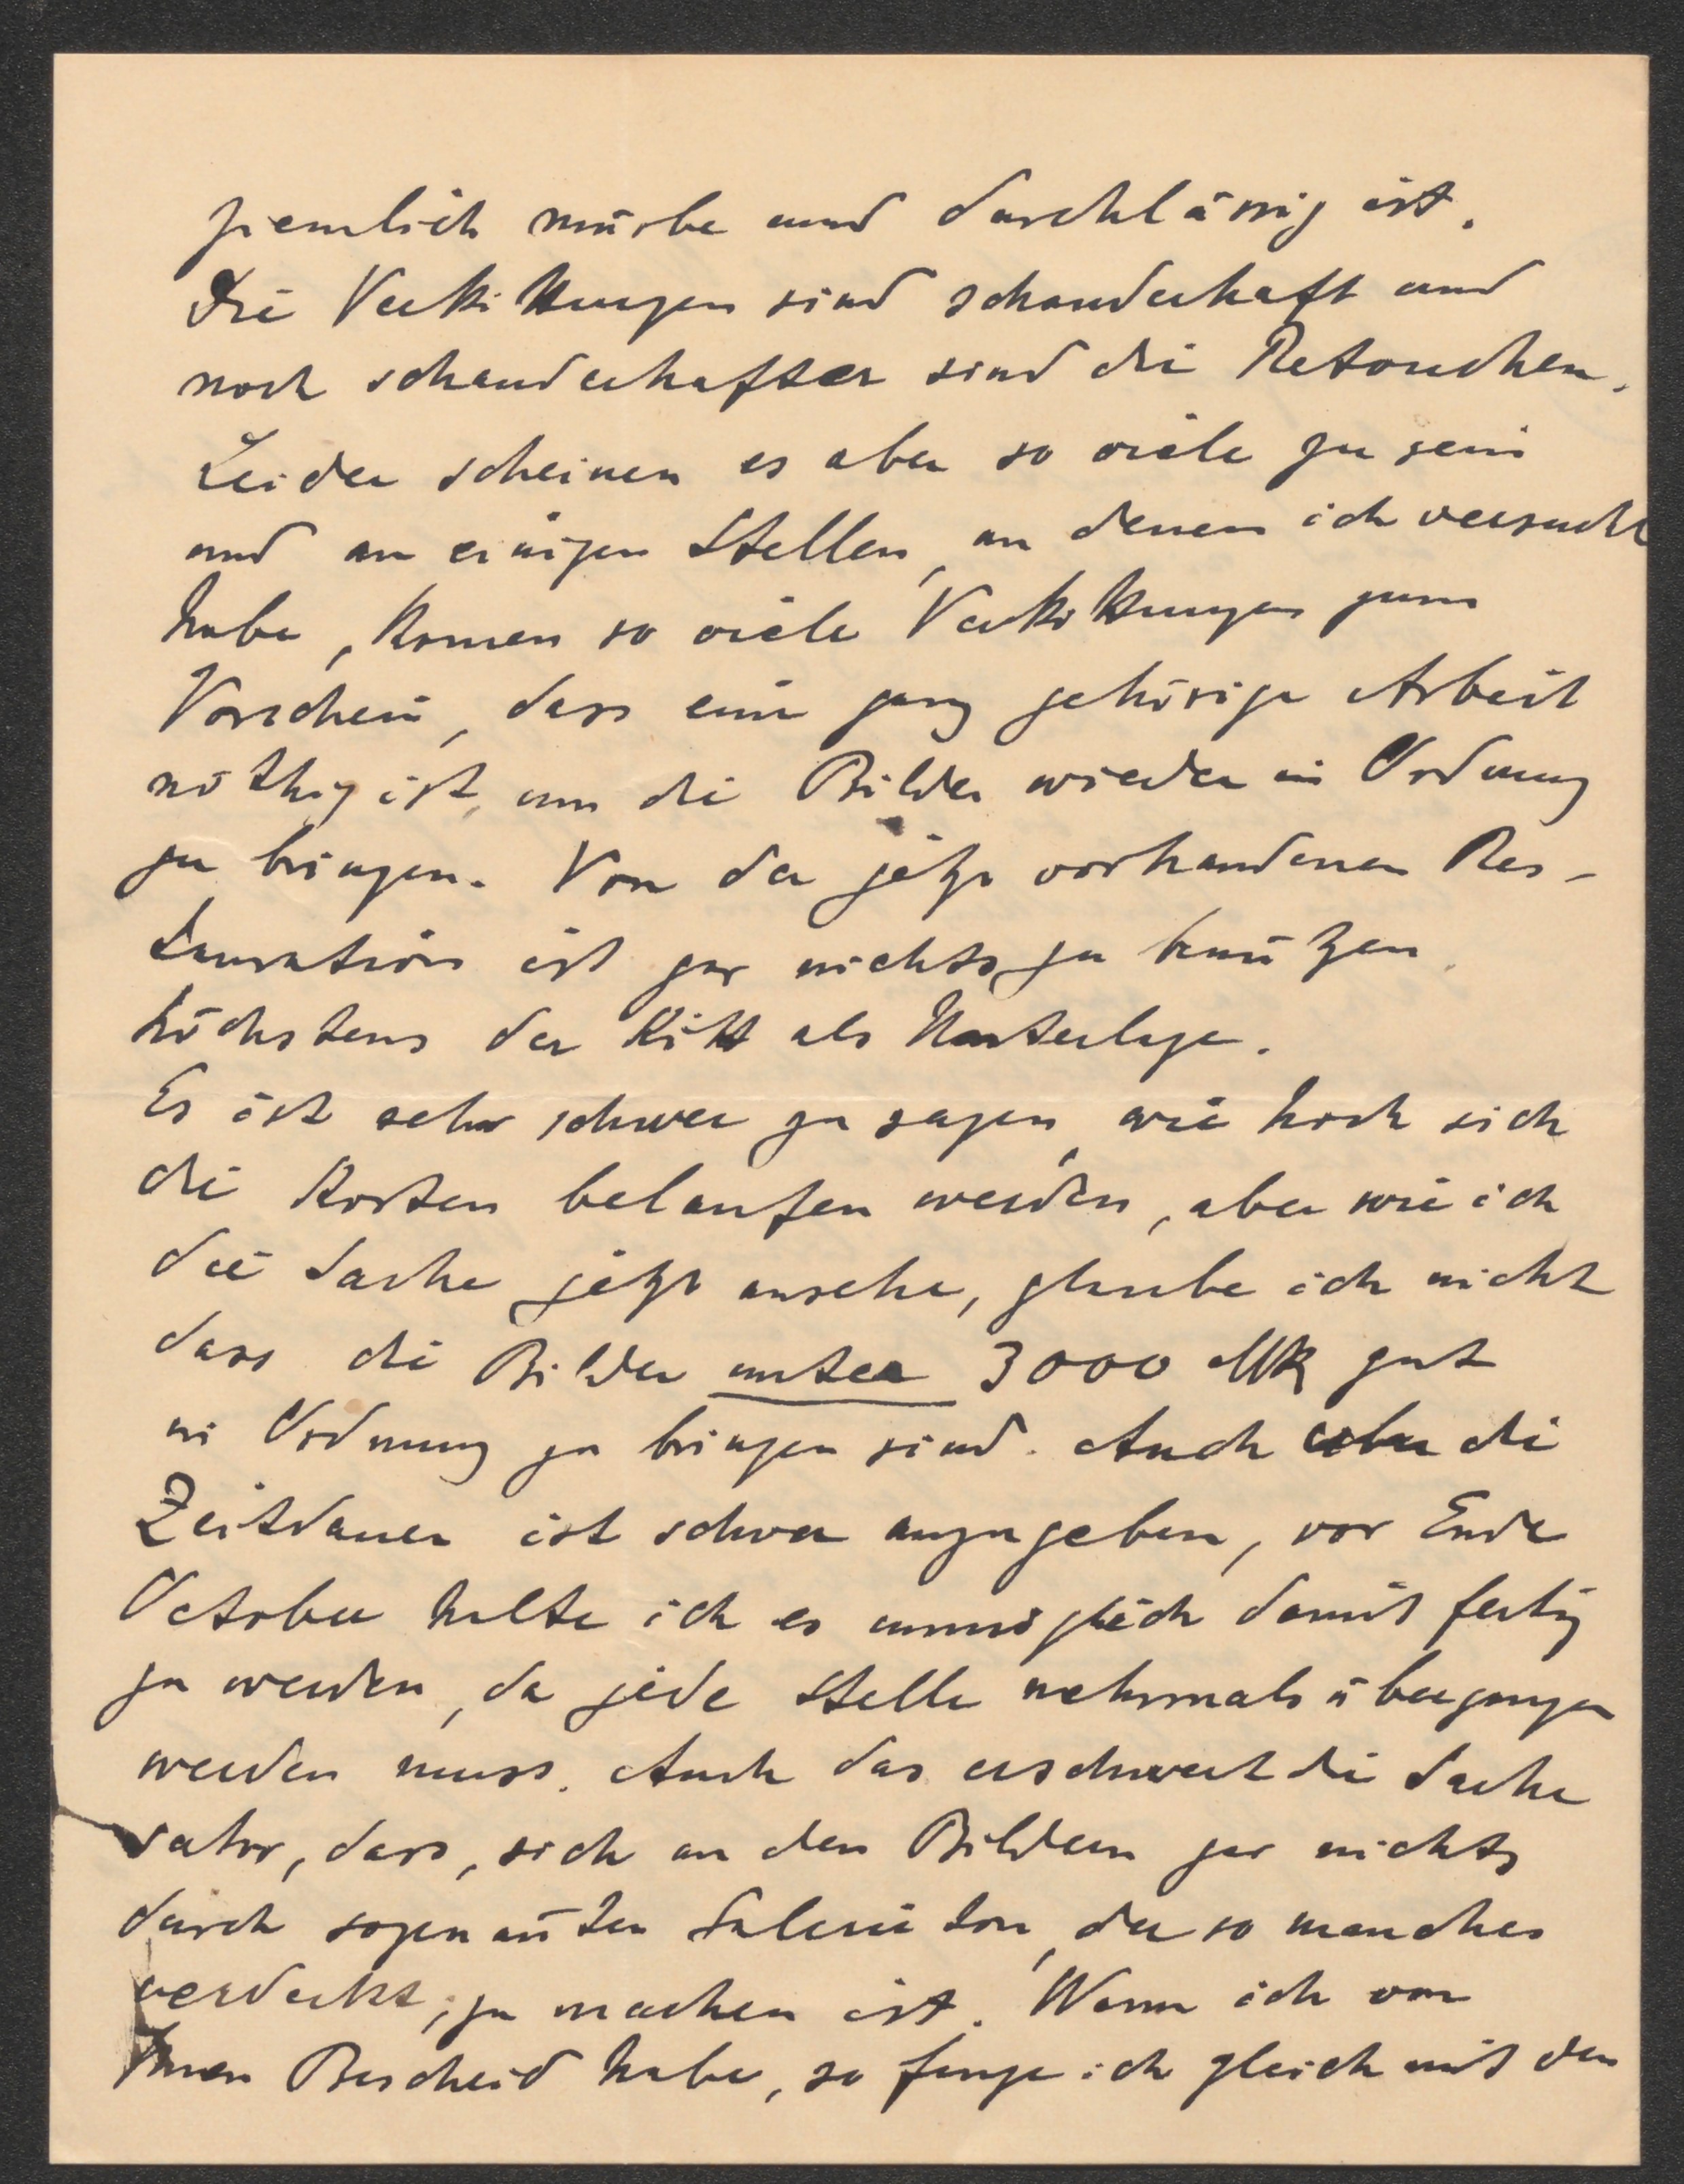 ziemlich mürbe und durchlässig ist.
Die Verkittungen sind schauderhaft und
noch schauderhafter sind die Retouchen.
Leider scheinen es aber so viele zu sein
und an einigen Stellen, an denen ich versucht
habe, komen so viele Verkittungen zum
Vorschein, dass eine ganz gehörige Arbeit
nöthig ist, um die Bilder wieder in Ordnung
zu bringen. Von der jetzt vorhandenen Res-
tauration ist gar nichts zu benützen
höchstens der Kitt als Unterlage.
Es ist sehr schwer zu sagen, wie hoch sich
die Kosten belaufen werden, aber wie ich
die Sache jetzt ansehe, glaube ich nicht
dass die Bilder unter 3000 Mk gut
in Ordnung zu bringen sind. Auch über die
Zeitdauer ist schwer anzugeben, vor Ende
October halte ich es unmöglich damit fertig
zu werden, da jede Stelle mehrmals übergangen
werden muss. Auch das erschwert die Sache
sehr, dass, sich an den Bildern gar nichts
durch sogenañten Galerieton, der so manches
verdeckt, zu machen ist. Wenn ich von
Ihnen Bescheid habe, so fange ich gleich mit den